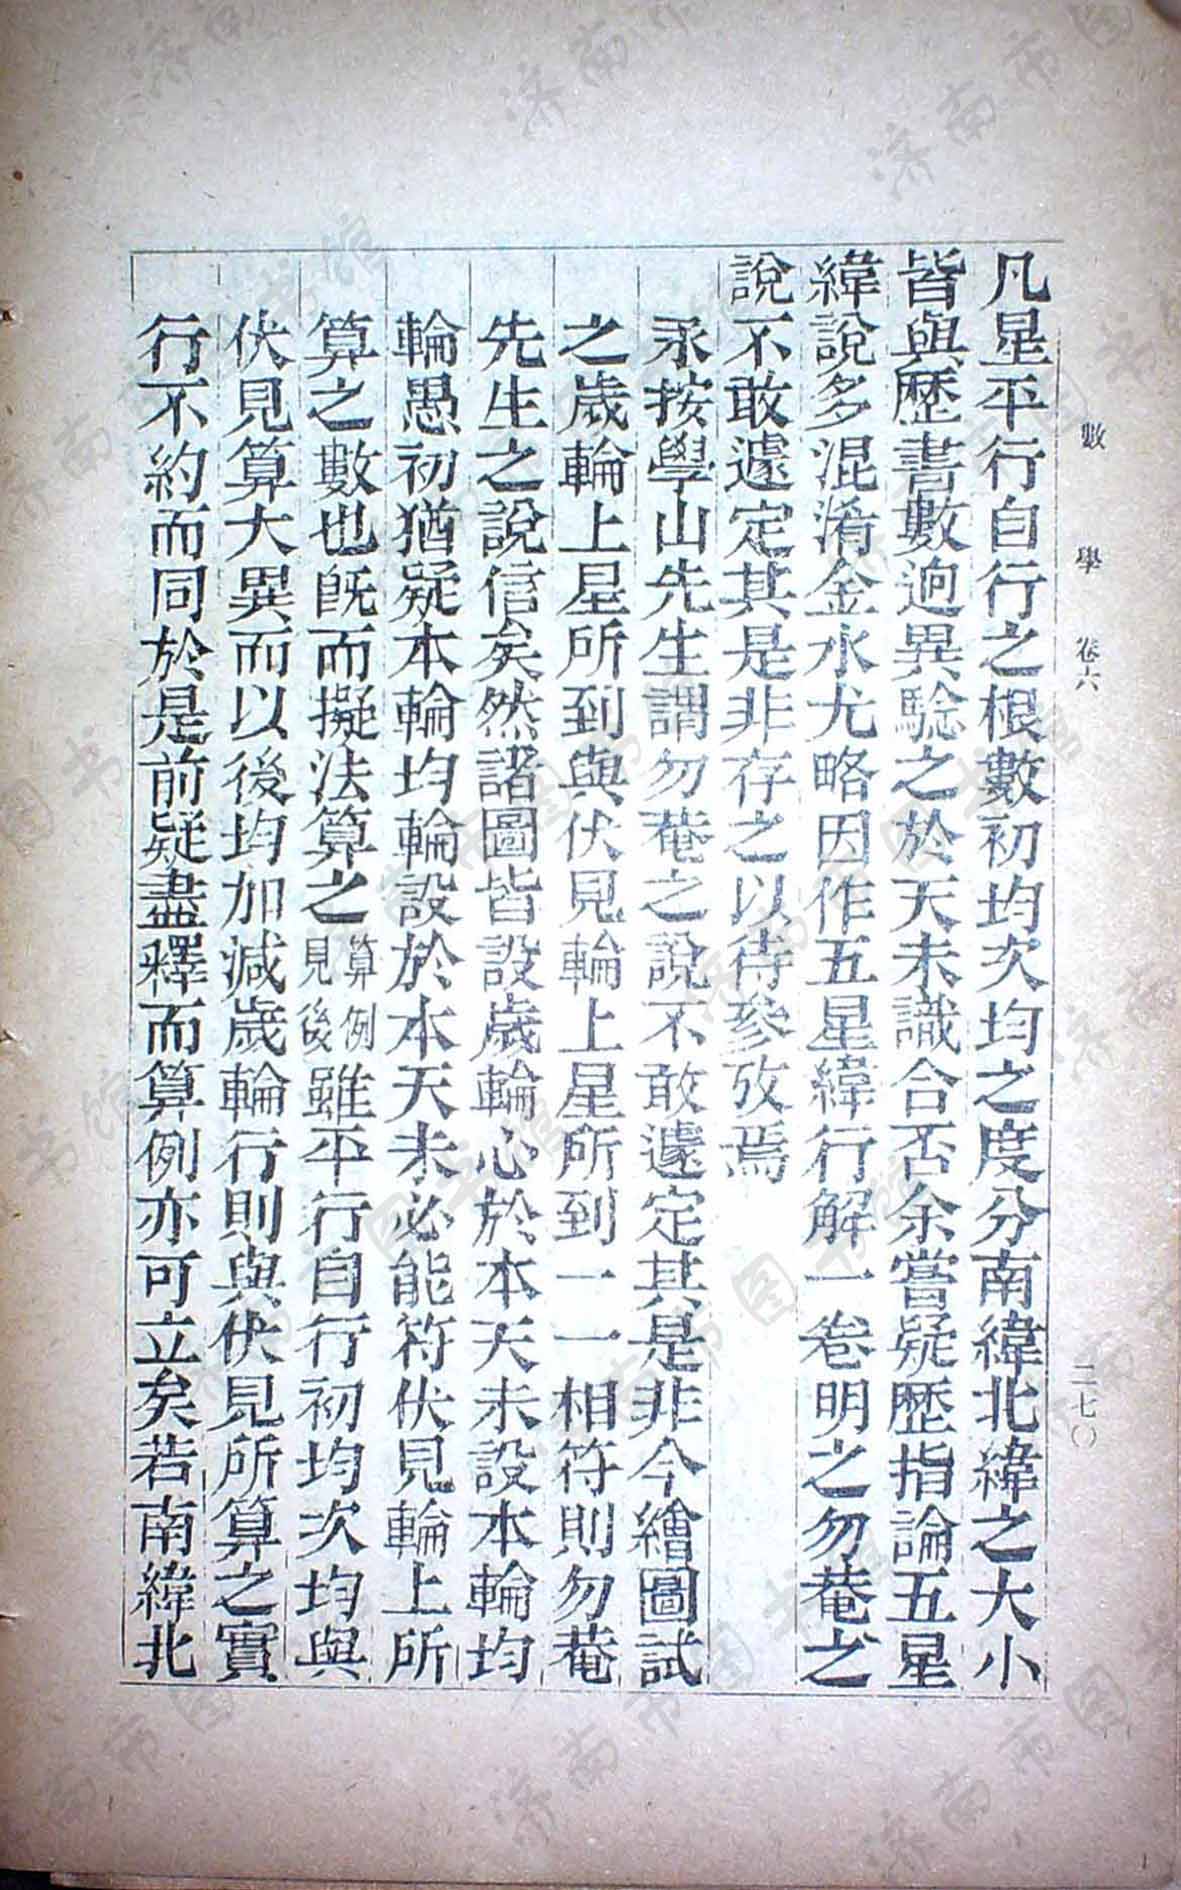 數學 卷六 二七〇
凡星平行自行之根數初均次均之度分南緯北緯之大小
皆與歷書數迥異騐之於天未識合否余嘗疑歷指論五星
緯說多混淆金水尤略因作五星緯行解一卷明之勿菴之
說不敢遽定其是非存之以待參攷焉
永按學山先生謂勿菴之說不敢遽定其是非今繪圖試
之歲輪上星所到與伏見輪上星所到一一相符則勿菴
先生之說信矣然諸圖皆設歲輪心於本天未設本輪均
輪愚初猶疑本輪均輪設於本天未必能符伏見輪上所
算之數也旣而擬法算之算例見後雖平行自行初均次均與
伏見算大異而以後均加減歲輪行則與伏見所算之實
行不約而同於是前疑盡釋而算例亦可立矣若南緯北
济南市图书馆